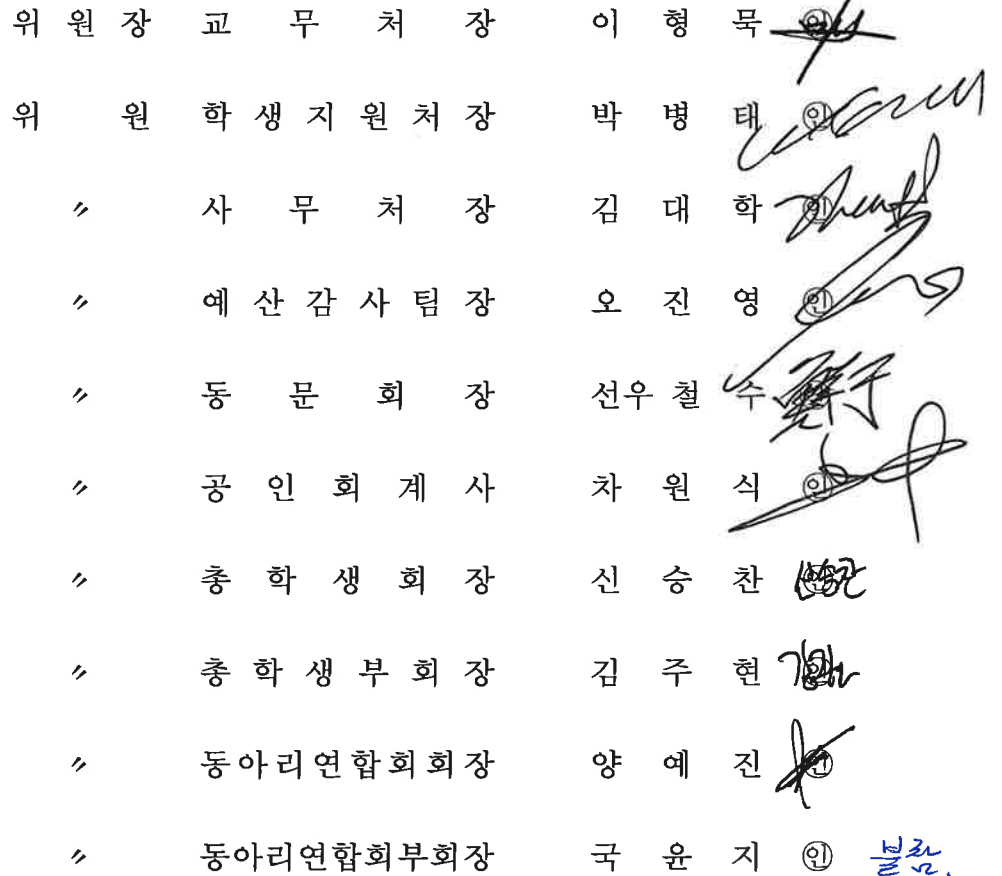 위 원 장 교 무 처 장 이 형 묵 ㊞
위 원 학 생 지 원 처 장 박 병 태 ㊞
〃 사 무 처 장 김 대 학 ㊞
〃 예 산 감 사 팀 장 오 진 영 ㊞
〃 동 문 회 장 선우 철 수
〃 공 인 회 계 사 차 원 식 ㊞
〃 총 학 생 회 장 신 승 찬 ㊞
〃 총 학 생 부 회 장 김 주 현 ㊞
〃 동아리연합회회장 양 예 진 ㊞
〃 동아리연합회부회장 국 윤 지 ㊞ 불참.